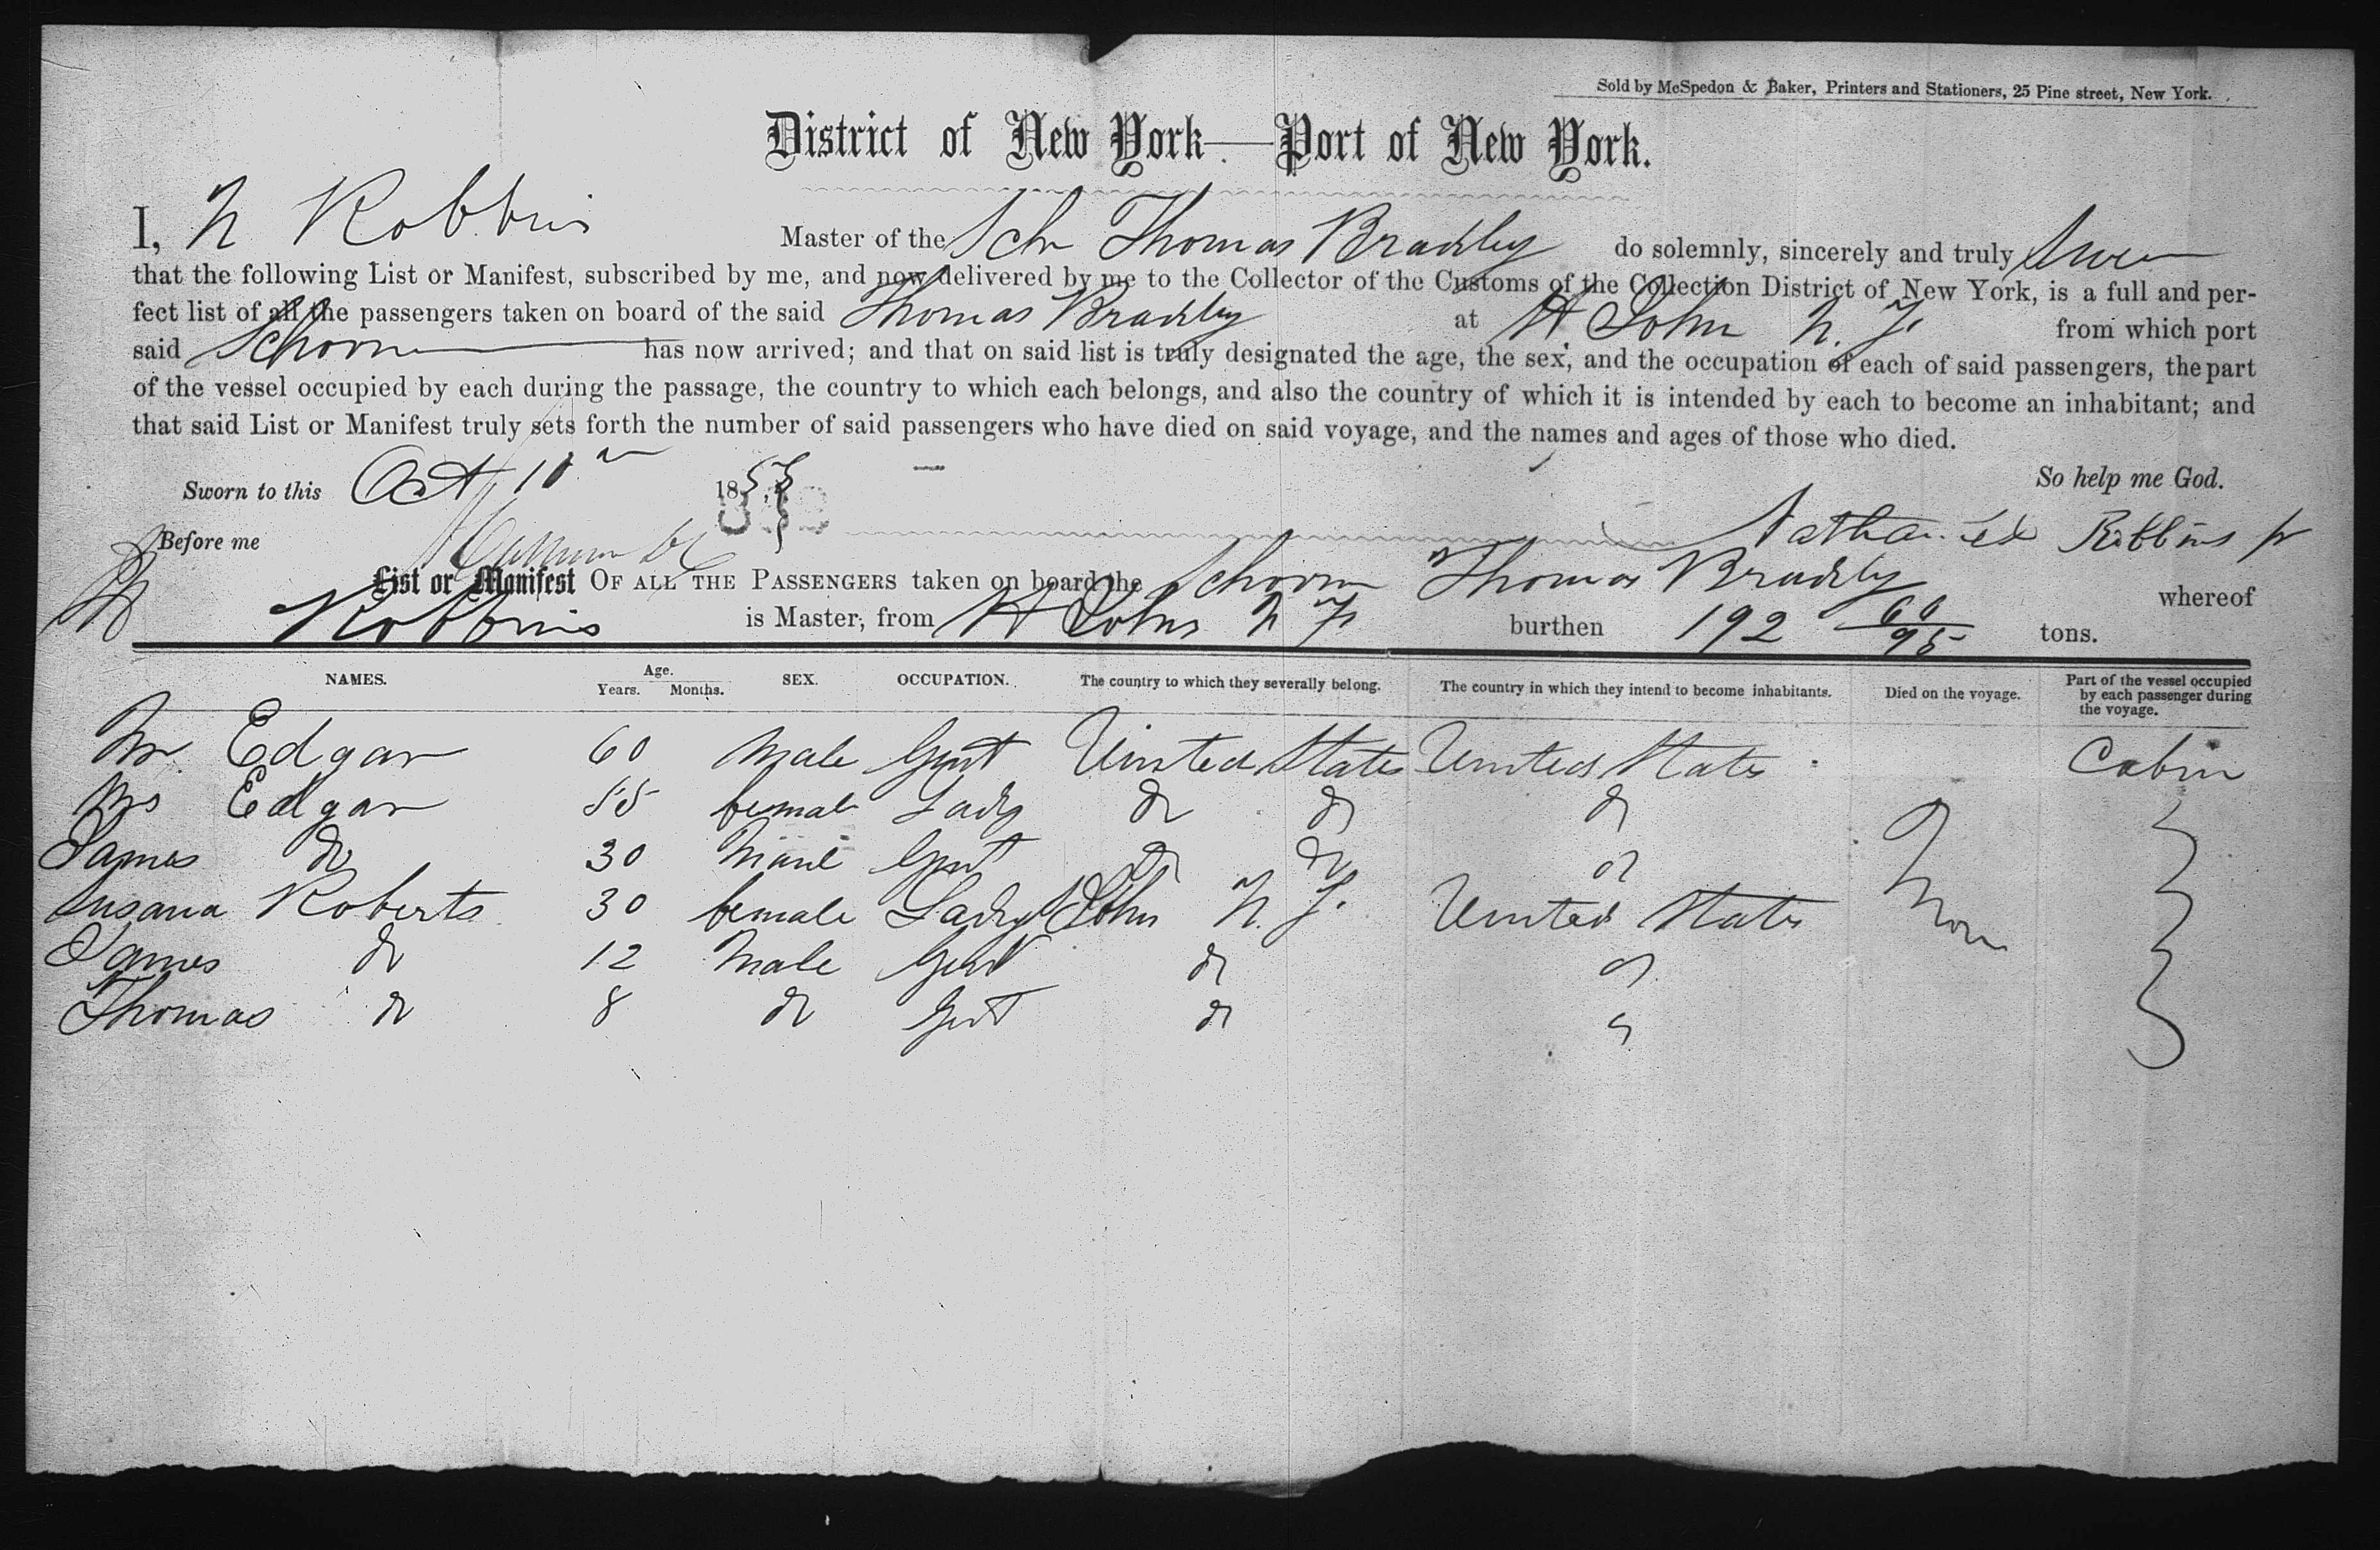 Sold by McSpedon & Baker, Printers and Stationers, 25 Pine street, New York.
District of New York—Port of New York.
I, N Robbins Master of the Schr Thomas Bradley do solemnly, sincerely and truly Swear
that the following List or Manifest, subscribed by me, and now delivered by me to the Collector of the Customs of the Collection District of New York, is a full and per-
fect list of all the passengers taken on board of the said Thomas Bradley at St John N. F. from which port
said Schooner has now arrived; and that on said list is truly designated the age, the sex, and the occupation of each of said passengers, the part
of the vessel occupied by each during the passage, the country to which each belongs, and also the country of which it is intended by each to become an inhabitant; and
that said List or Manifest truly sets forth the number of said passengers who have died on said voyage, and the names and ages of those who died.
Sworn to this Oct 10 1853 So help me God.
Before me Nathaniel Robbins jr
List or Manifest OF ALL THE PASSENGERS taken on board the Schooner Thomas Bradley whereof
N Robbins is Master, from St Johns N F burthen 192 60/95 tons.
NAMES. Age. Years. Months. SEX. OCCUPATION. The country to which they severally belong. The country in which they intend to become inhabitants. Died on the voyage. Part of the vessel occupied by each passenger during the voyage.
Mr. Edgar 60 Male Gent United States United States Cabin
Mrs Edgar 55 female Lady do do do
James do 30 Male Gent do do do
Susana Roberts 30 female Lady St John N. F. United States None
James do 12 Male Gent do do
Thomas do 8 do Gent do do